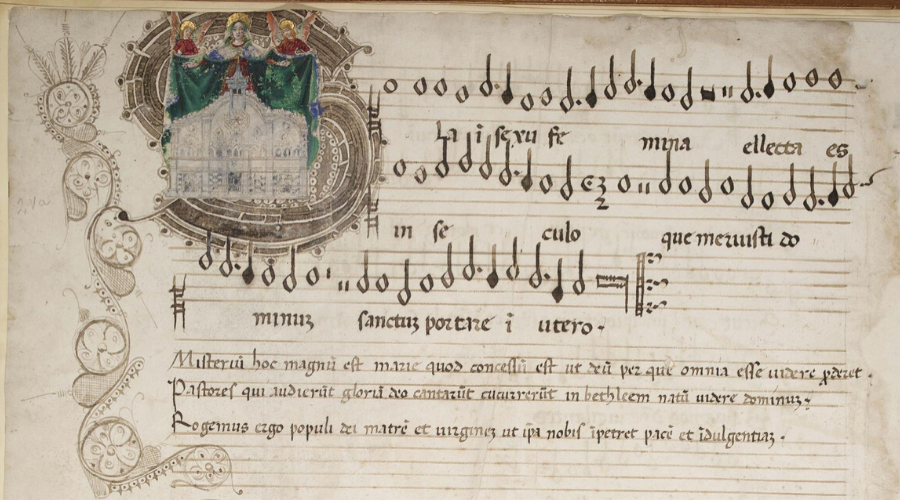 la ī sexu fe mina ellecta es
in se culo que meruisti do
minuꝫ sanctuꝫ portare ī utero.
Misteriū hoc magnū est marie quod concessū est ut deū per que omnia esse videre ꝓderet.
Pastores qui audierūt gloriā deo cantarūt cucurrerūt in bethleem natū videre dominuꝫ.
Rogemus ergo populi dei matrē et virgineꝫ ut ip̄a nobis īpetret pacē et īdulgentiaꝫ.